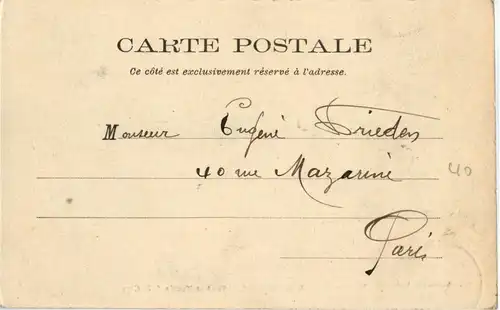 CARTE POSTALE
Ce côté est exclusivement réservé à l'adresse.
Monsieur Eugène Frieden
40 rue Mazarine
40
Paris